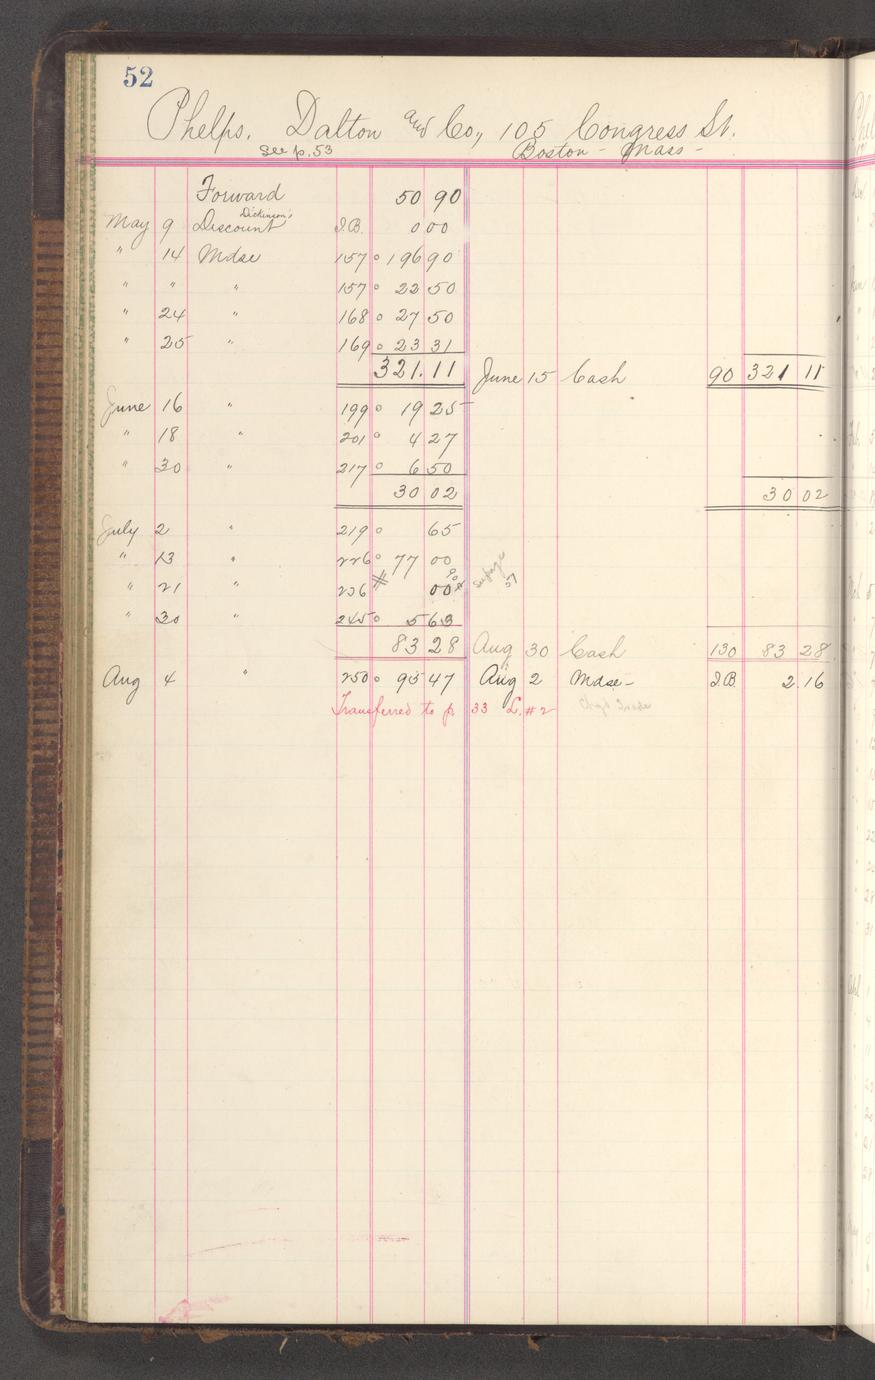 52
Phelps, Dalton and Co., 105 Congress St.
See p. 53 Boston - Mass -
Forward 50 90
Dickinson's
May 9 Discount J.B. 0 00
" 14 Mdse 157 ° 196 90
" " " 157 ° 22 50
" 24 " 168 ° 27 50
" 25 " 169 ° 23 31
321.11 June 15 Cash 90 321 11
June 16 " 199 ° 19 25
" 18 " 201 ° 4 27
" 30 " 217 ° 6 50
30 02 30 02
July 2 " 219 ° 65
" 13 " 226 ° 77 00
" 21 " 236 00
" 30 " 245 ° 5 63
83 28 Aug 30 Cash 130 83 28
Aug 4 " 250 ° 95 47 Aug 2 Mdse - J.B. 2 16
Transferred to p 33 L. #2